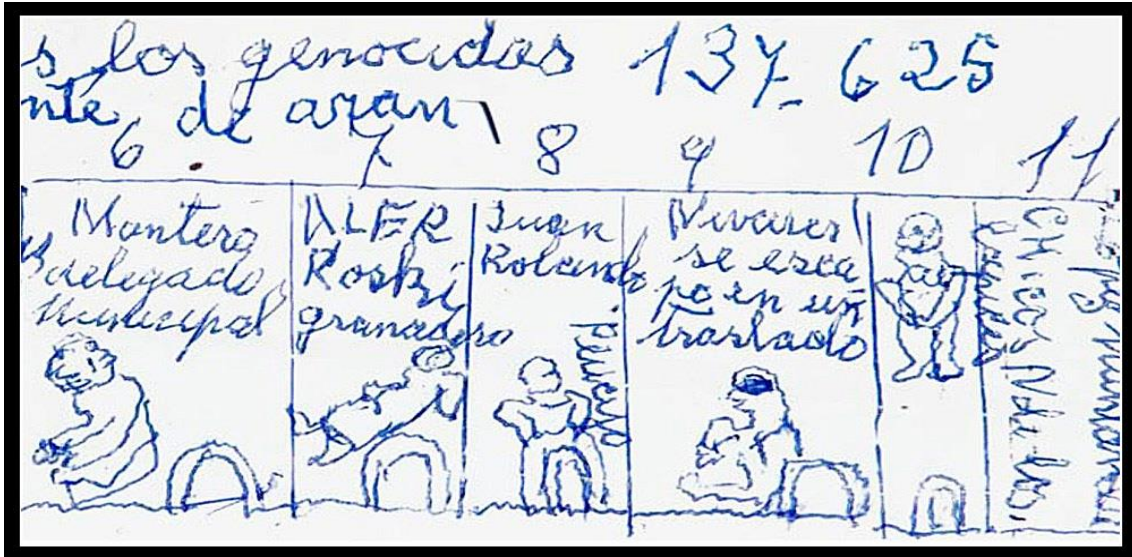 s los genocidas 137 625
nte, de aran
6 7 8 9 10 11
Montero
delegado
Municipal
ALER
Roski
granadero
Juan
Rolando
Nivares
se esca
po en un
traslado
Chicos